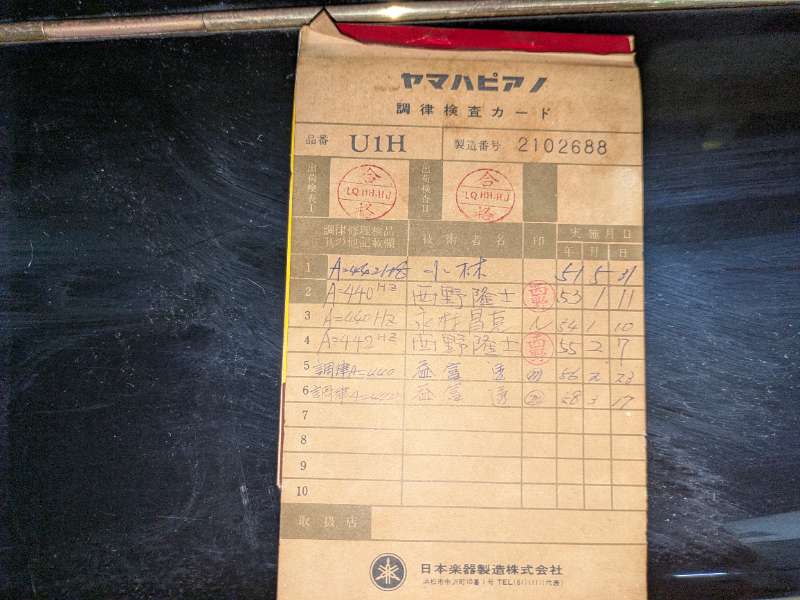 ヤマハピアノ
調律検査カード
品番 U1H 製造番号 2102688
出荷検査I 合格 出荷検査II 合格
調律修理検品 技術者名 印 実施月日
其の他記載欄 年 月 日
1 A=442Hz 小林 51 5 31
2 A=440Hz 西野隆士 53 1 11
3 A=440Hz 54 1 10
4 A=442Hz 西野隆士 55 2 7
5 調律A=440 56 2 23
6 調律A=440 58 3 17
7
8
9
10
取扱店
日本楽器製造株式会社